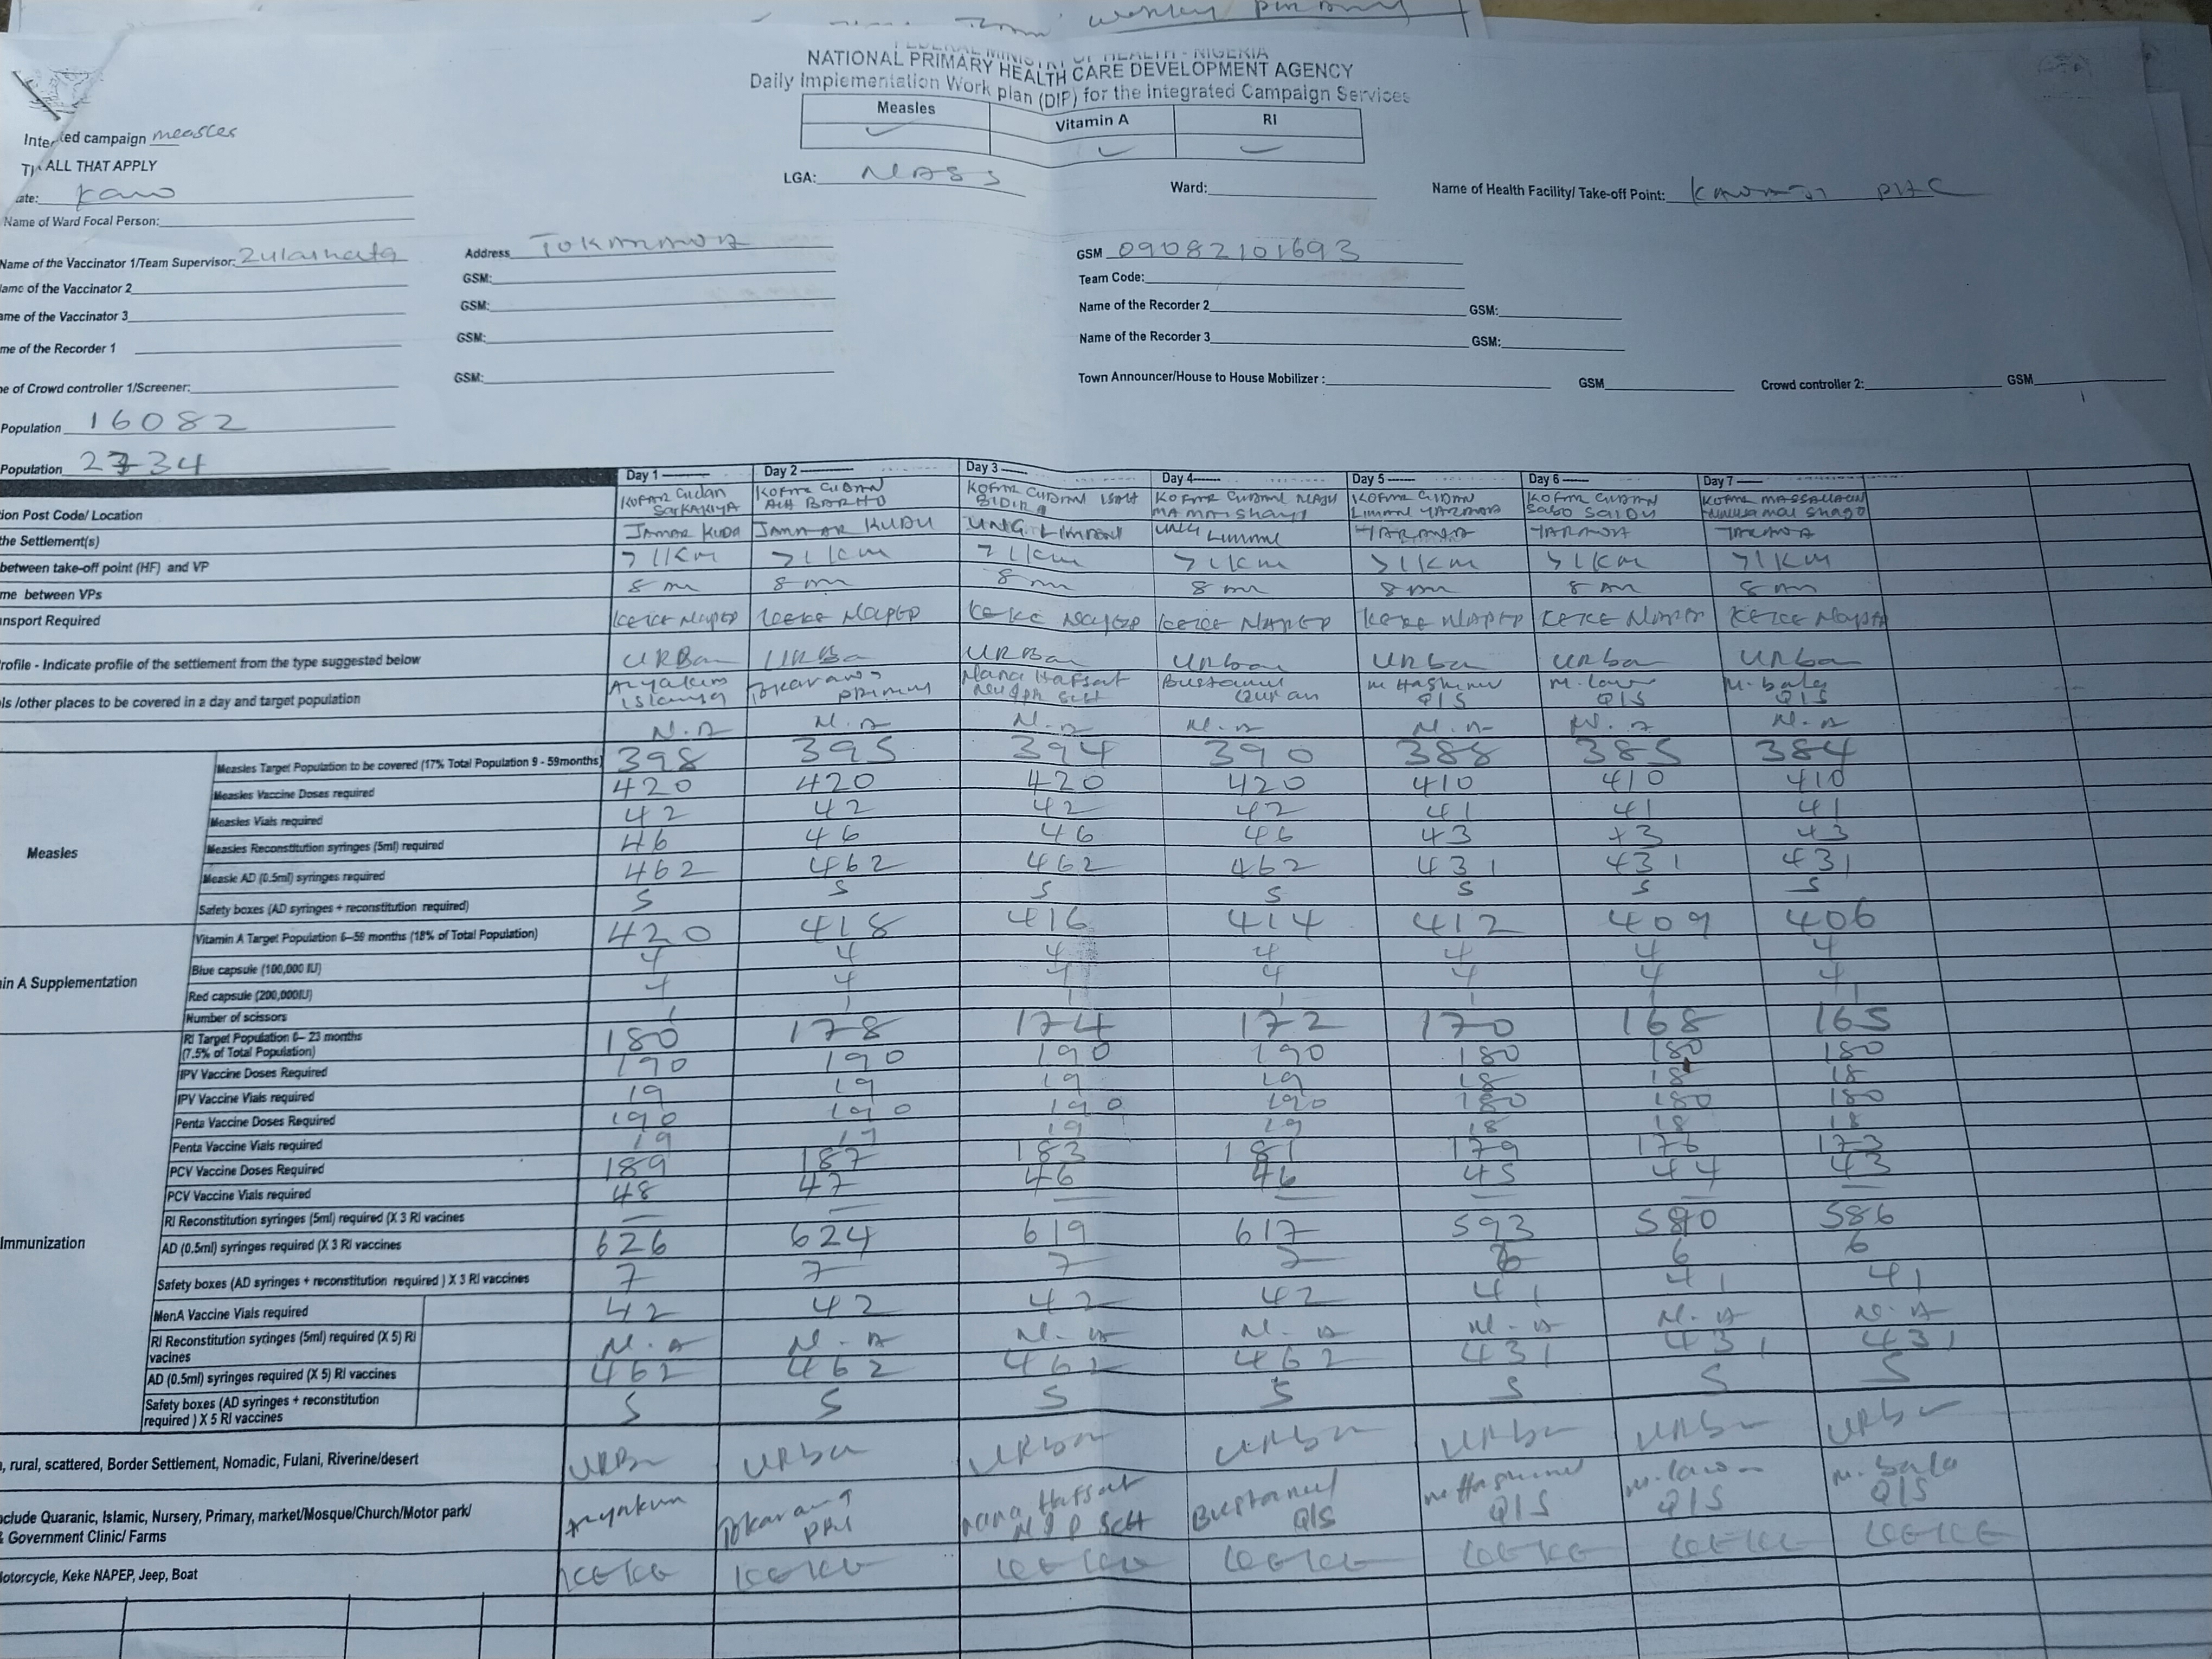 FEDERAL MINISTRY OF HEALTH - NIGERIA
NATIONAL PRIMARY HEALTH CARE DEVELOPMENT AGENCY
Daily Implementation Work plan (DIP) for the Integrated Campaign Services
Measles Vitamin A RI
✓ ✓ ✓
campaign measles
ALL THAT APPLY
LGA: Ward: Name of Health Facility/ Take-off Point: PHC
Name of Ward Focal Person:
Name of the Vaccinator 1/Team Supervisor: Address GSM 09082101693
ame of the Vaccinator 2 GSM: Team Code:
ame of the Vaccinator 3 GSM: Name of the Recorder 2 GSM:
me of the Recorder 1 GSM: Name of the Recorder 3 GSM:
e of Crowd controller 1/Screener: GSM: Town Announcer/House to House Mobilizer : GSM Crowd controller 2: GSM
Population 16082
Population 2734
Day 1 Day 2 Day 3 Day 4 Day 5 Day 6 Day 7
ion Post Code/ Location KOFAR GIDAN KOFAR GIDAN KOFAR GIDAN KOFAR GIDAN
the Settlement(s) JAMAR KUDU JAMMAR KUDU
between take-off point (HF) and VP >1Km >1Km >1Km >1Km >1Km >1Km >1Km
me between VPs 8 8 8 8 8 8 8
nsport Required KEKE NAPEP KEKE NAPEP KEKE NAPEP KEKE NAPEP KEKE NAPEP KEKE NAPEP KEKE
rofile - Indicate profile of the settlement from the type suggested below URBan URBan URBan Urban Urban Urban Urban
ls /other places to be covered in a day and target population Nana Hafsat Qur'an Q/S Q/S M. bala Q/S
N.A N.A N.A N.A N.A N.A N.A
Measles
Measles Target Population to be covered (17% Total Population 9 - 59months) 398 395 394 390 388 385 384
Measles Vaccine Doses required 420 420 420 420 410 410 410
Measles Vials required 42 42 42 42 41 41 41
Measles Reconstitution syringes (5ml) required 46 46 46 46 43 43 43
Measle AD (0.5ml) syringes required 462 462 462 462 431 431 431
Safety boxes (AD syringes + reconstitution required) 5 5 5 5 5 5 5
in A Supplementation
Vitamin A Target Population 6–59 months (18% of Total Population) 420 418 416 414 412 409 406
Blue capsule (100,000 IU) 4 4 4 4 4 4 4
Red capsule (200,000IU) 4 4 4 4 4 4 4
Number of scissors 1 1 1 1 1 1 1
Immunization
RI Target Population 6– 23 months
(7.5% of Total Population) 180 178 174 172 170 168 165
IPV Vaccine Doses Required 190 190 190 190 180 180 180
IPV Vaccine Vials required 19 19 19 19 18 18 18
Penta Vaccine Doses Required 190 190 190 190 180 180 180
Penta Vaccine Vials required 19 19 19 19 18 18 18
PCV Vaccine Doses Required 189 187 183 181 179 176 173
PCV Vaccine Vials required 48 47 46 46 45 44 43
RI Reconstitution syringes (5ml) required (X 3 RI vacines
AD (0.5ml) syringes required (X 3 RI vaccines 626 624 619 617 593 586
Safety boxes (AD syringes + reconstitution required ) X 3 RI vaccines 7 7 7 7 6 6 6
MenA Vaccine Vials required 42 42 42 42 41 41 41
RI Reconstitution syringes (5ml) required (X 5) RI
vacines N.A N.A N.A N.A N.A N.A N.A
AD (0.5ml) syringes required (X 5) RI vaccines 462 462 462 462 431 431 431
Safety boxes (AD syringes + reconstitution
required ) X 5 RI vaccines 5 5 5 5 5 5 5
, rural, scattered, Border Settlement, Nomadic, Fulani, Riverine/desert URBan Urban Urban Urban Urban Urban Urban
clude Quaranic, Islamic, Nursery, Primary, market/Mosque/Church/Motor park/
Government Clinic/ Farms Nana Hafsat Q/S Q/S Q/S M. bala Q/S
otorcycle, Keke NAPEP, Jeep, Boat KEKE KEKE KEKE KEKE KEKE KEKE KEKE